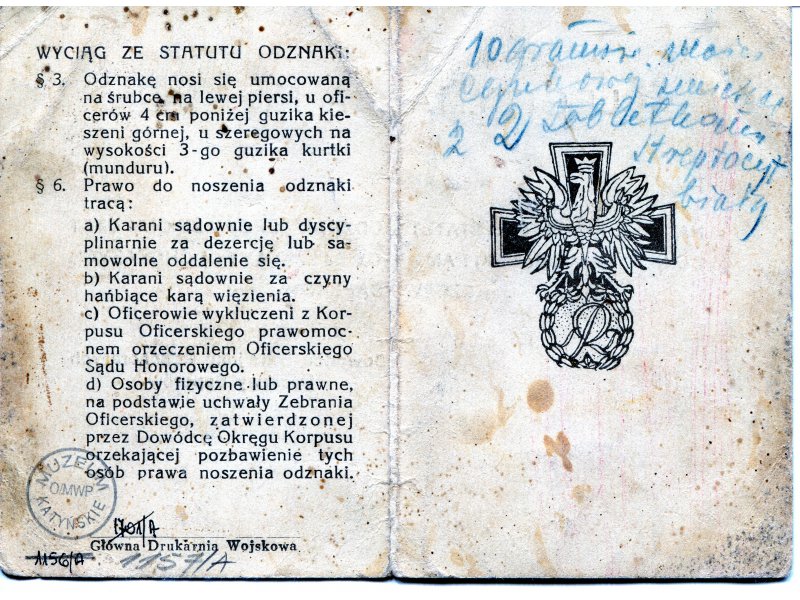 WYCIĄG ZE STATUTU ODZNAKI:
§ 3. Odznakę nosi się umocowaną
na śrubce, na lewej piersi, u ofi-
cerów 4 cm poniżej guzika kie-
szeni górnej, u szeregowych na
wysokości 3-go guzika kurtki
(munduru).
§ 6. Prawo do noszenia odznaki
tracą:
a) Karani sądownie lub dyscy-
plinarnie za dezercję lub sa-
mowolne oddalenie się.
b) Karani sądownie za czyny
hańbiące karą więzienia.
c) Oficerowie wykluczeni z Kor-
pusu Oficerskiego prawomoc-
nem orzeczeniem Oficerskiego
Sądu Honorowego.
d) Osoby fizyczne lub prawne,
na podstawie uchwały Zebrania
Oficerskiego, zatwierdzonej
przez Dowódcę Okręgu Korpusu
orzekającej pozbawienie tych
osób prawa noszenia odznaki.
MUZEUM
O/MWP
KATYŃSKIE
Główna Drukarnia Wojskowa
1156/A
1157/A
10 gramów maści
cynkowej
2 2 tabletkami
streptocyt
biały